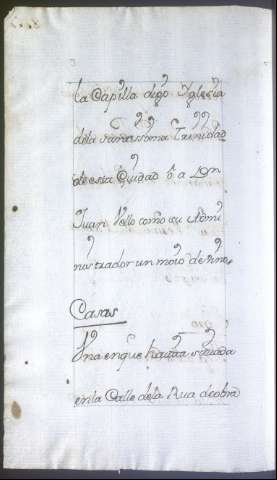 La Capilla digo Yglesia
dela santissima Trinidad
de esta Ciudad ô a Dn
Juan Vello como su Admi
nistrador un moio de vino
Casas
Una en que havita situada
en la Calle dela Rua de obra